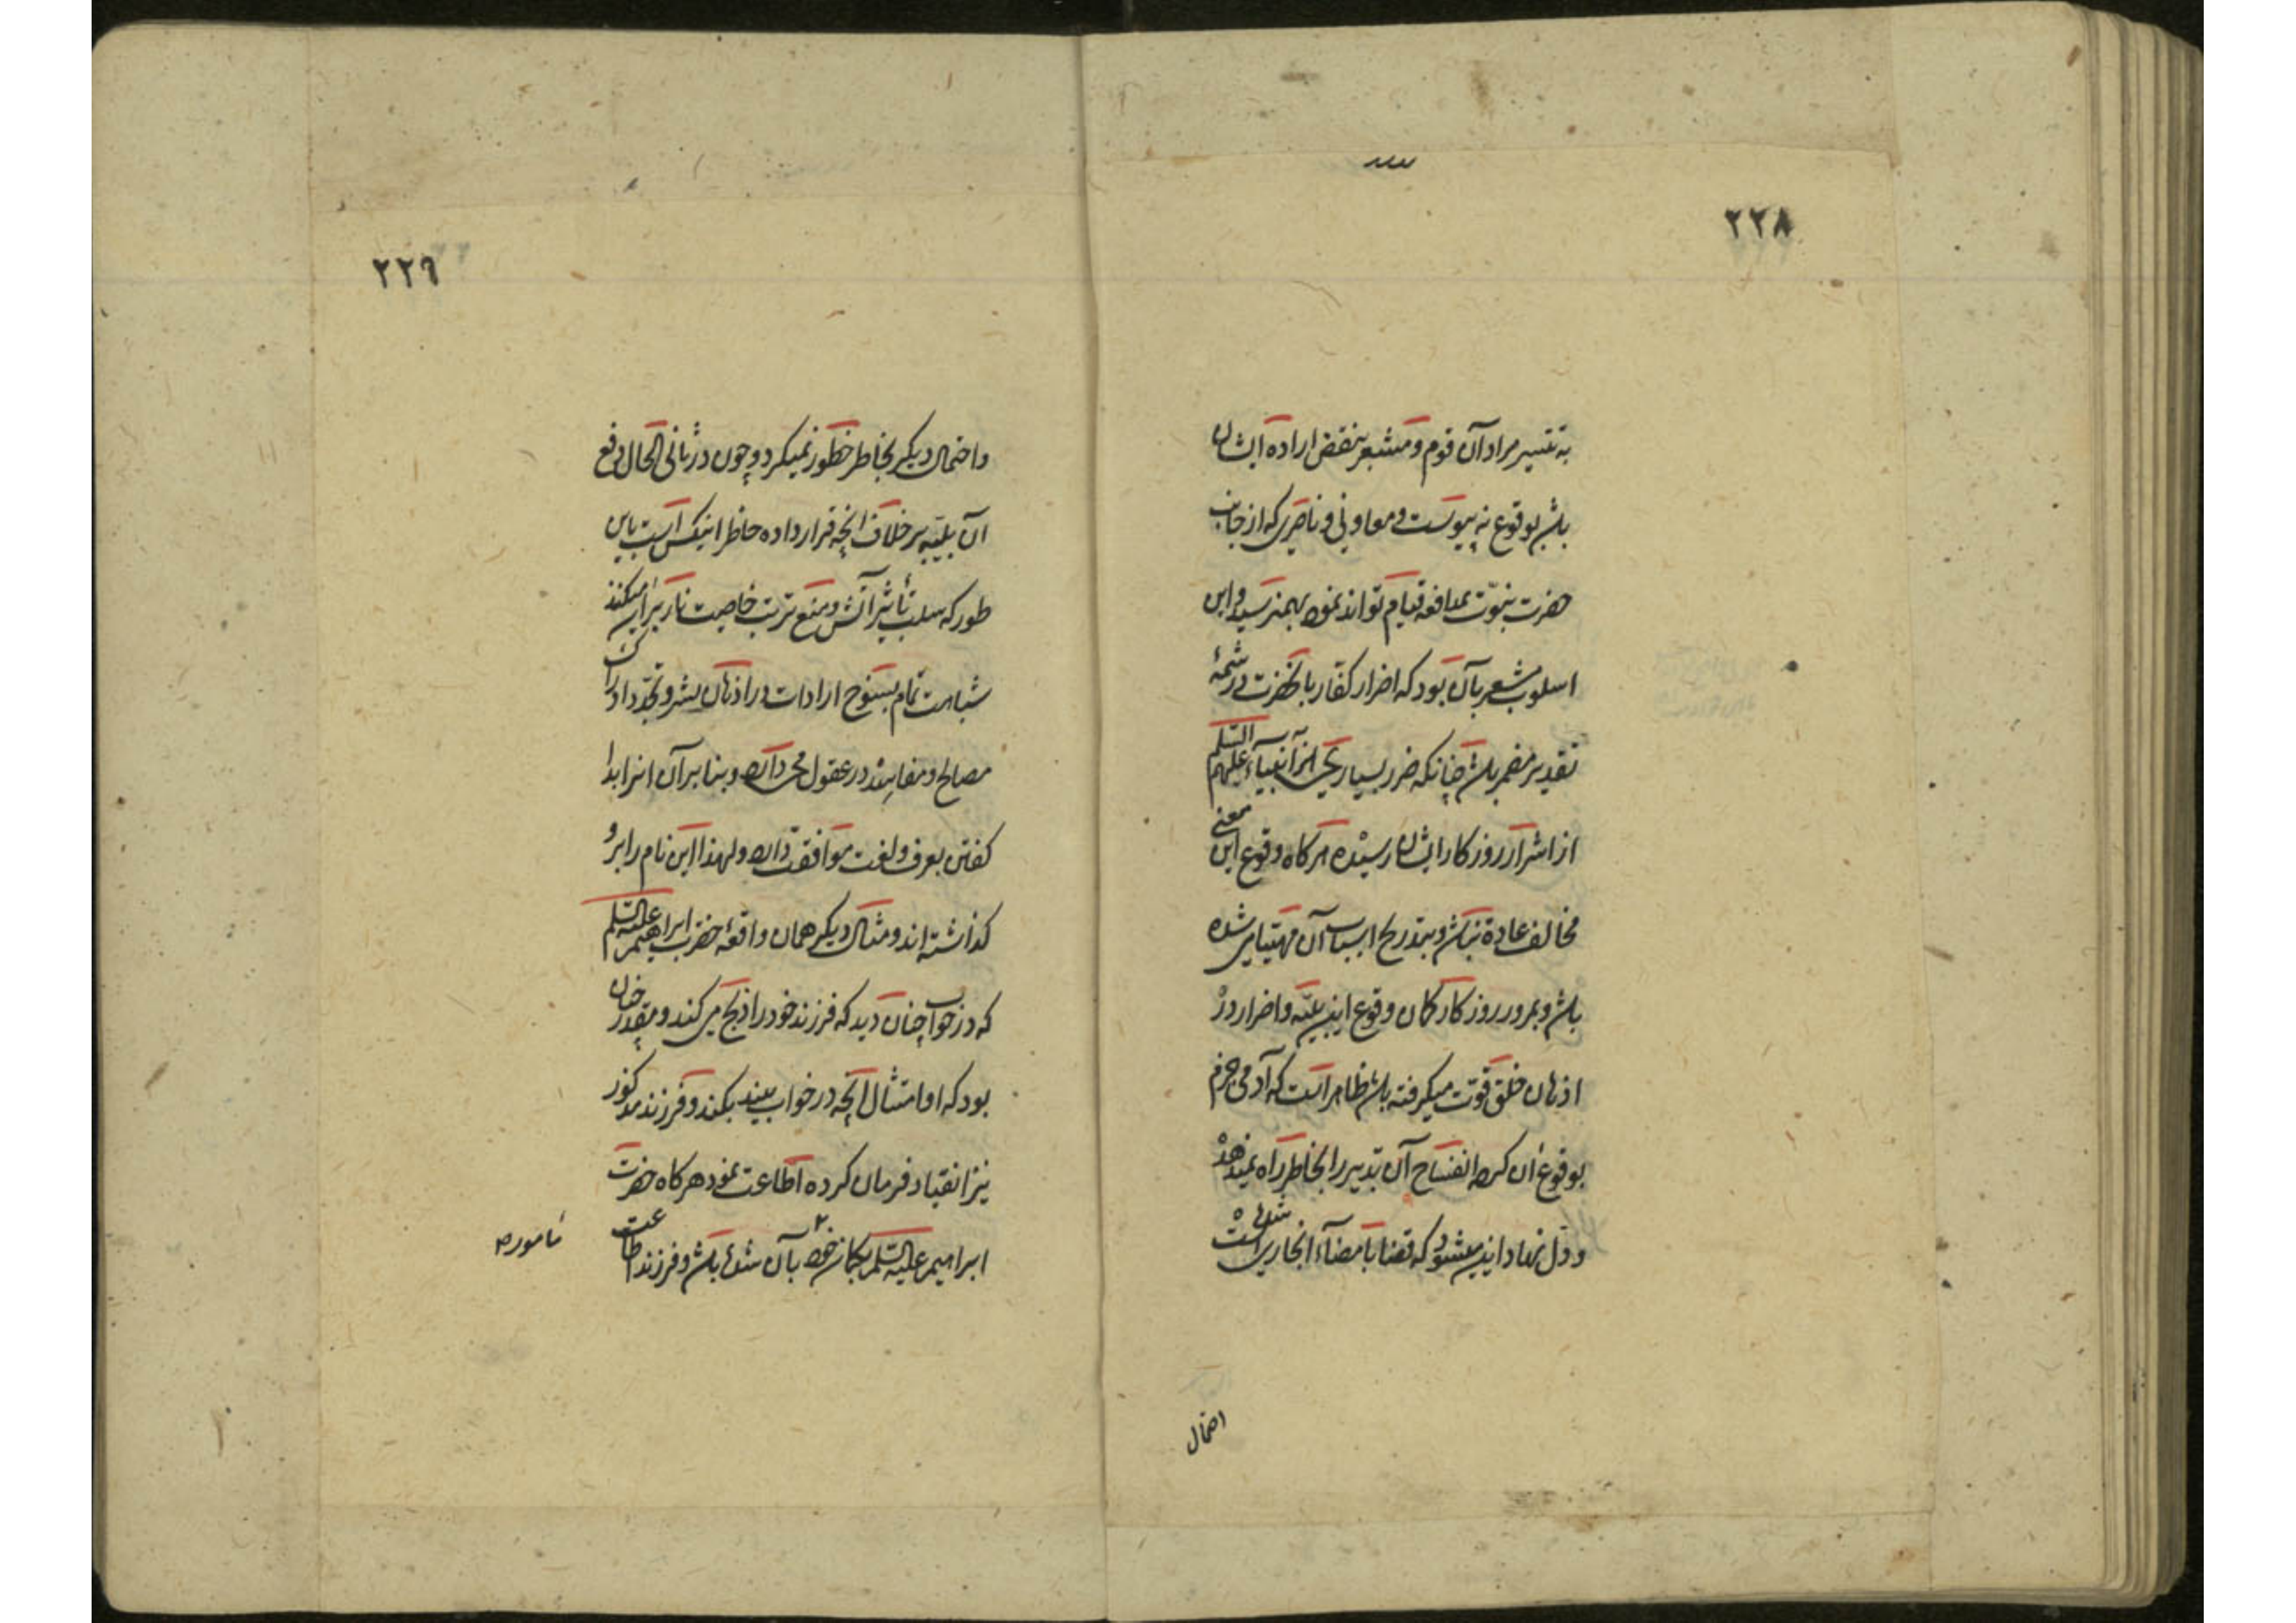 ۲۲۸
به تیسیر مراد آن قوم و مشعر بنقض اراده ایشان
باشد بوقوع نه پیوست و معاونی و ناصری که از جانب
حضرت نبوّت بمدافعه قیام تواند نمود بهم نرسید و این
اسلوب مشعر بآن بود که اضرار کفّار بآنحضرت در
تقدیر مضمر باشد چنانکه ضرر بسیاری از انبیآء علیهم السّلم
از اشرار روزکار ایشان رسیده هرکاه وقوع این معنی
مخالف عادة نباشد و بتدریج اسباب آن مهیّا می شده
باشد و بمرور روزکار کمان وقوع این بلیّه و اضرار در
اذهان خلق قوّت میکرفته باشد ظاهر است که آدمی جزم
بوقوع آن کرده انفساخ آن تدبیر را بخاطر راه نمیدهد
و دل نهاد این میشود که قضا بامضآء آن جاری شده است
احتمال
۲۲۹
واحتمال دیکر بخاطر خطور نمیکرد و چون در ثانی الحال دفع
آن بلیّه بر خلاف آنچه قرار داده خاطر اینکس است باین
طور که سلب تأثیر آتش و منع ترتب خاصیت نار بر آن میکند
شباهت تمام بسنوح ارادات در اذهان بشر و تجدد ادراک
مصالح و مفاسد در عقول می دارد و بنا بر آن انرا بدا
کفتن بعرف و لغت موافقت دارد و لهذا این نام را برو
کذاشته اند و مثال دیکر همان واقعهٔ حضرت ابراهیم علیه السّلم
که در خواب چنان دید که فرزند خود را ذبح می کند و مقدر چنان
بود که او امتثال آنچه در خواب بیند بکند و فرزند مذکور
نیز انقیاد فرمان کرده اطاعت نمود هرکاه حضرت
ابراهیم علیه السّلم بکمان خود بآن شده باشد و فرزند اطاعت
مأمور